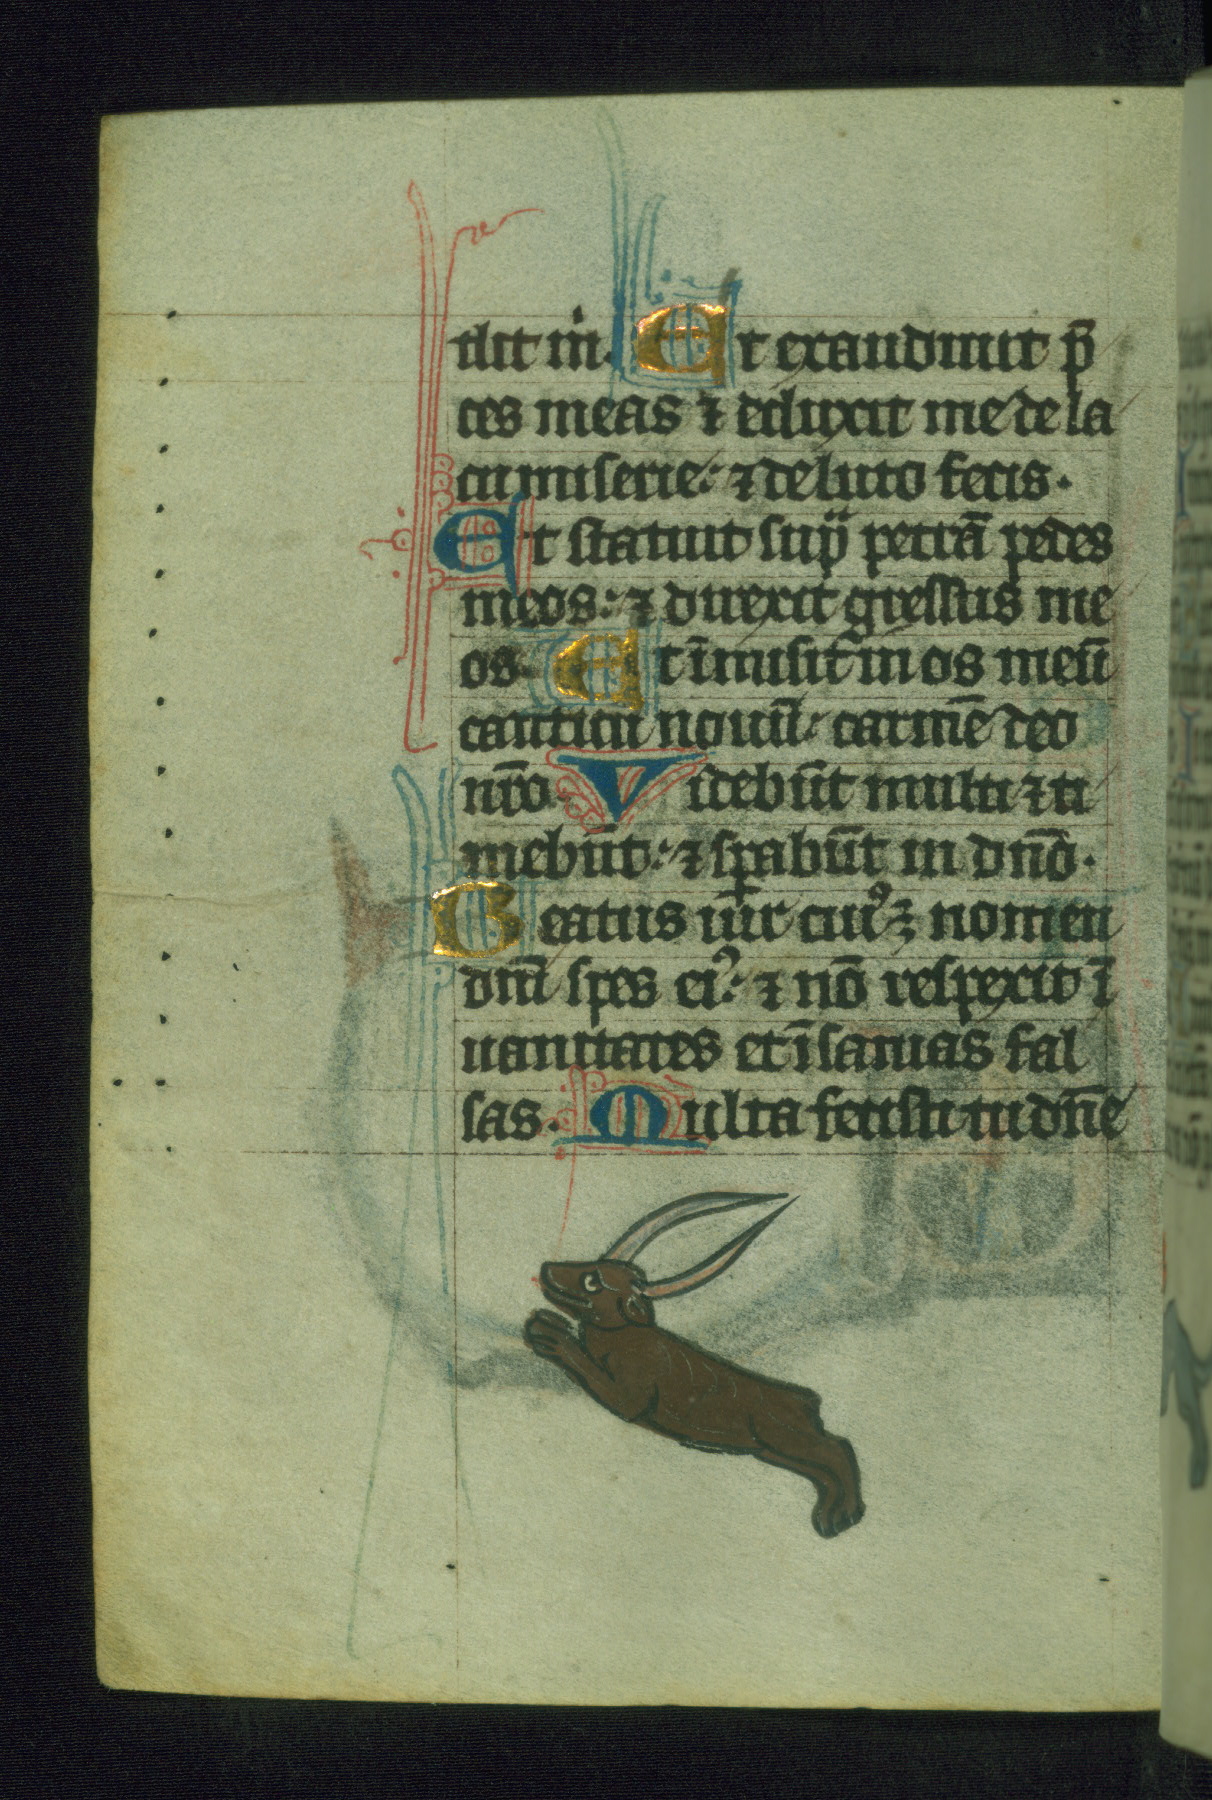 dit m̄. Et exaudiuit p̄
ces meas ⁊ eduxit me de la
cu miserie: ⁊ de luto fecis.
Et statuit sup̄ petrā pedes
meos: ⁊ direxit gressus me
os. Et īmisit in os meū
canticū nouū: carmē deo
nr̄o. Videbūt multi ⁊ ti
mebūt: ⁊ sꝑabūt in dn̄o.
Beatus uir cuiꝰ ⁊ nomen
dn̄i spes eiꝰ: ⁊ nō respexit ī
uanitates et īsanias fal
sas. Multa fecisti tu dn̄e